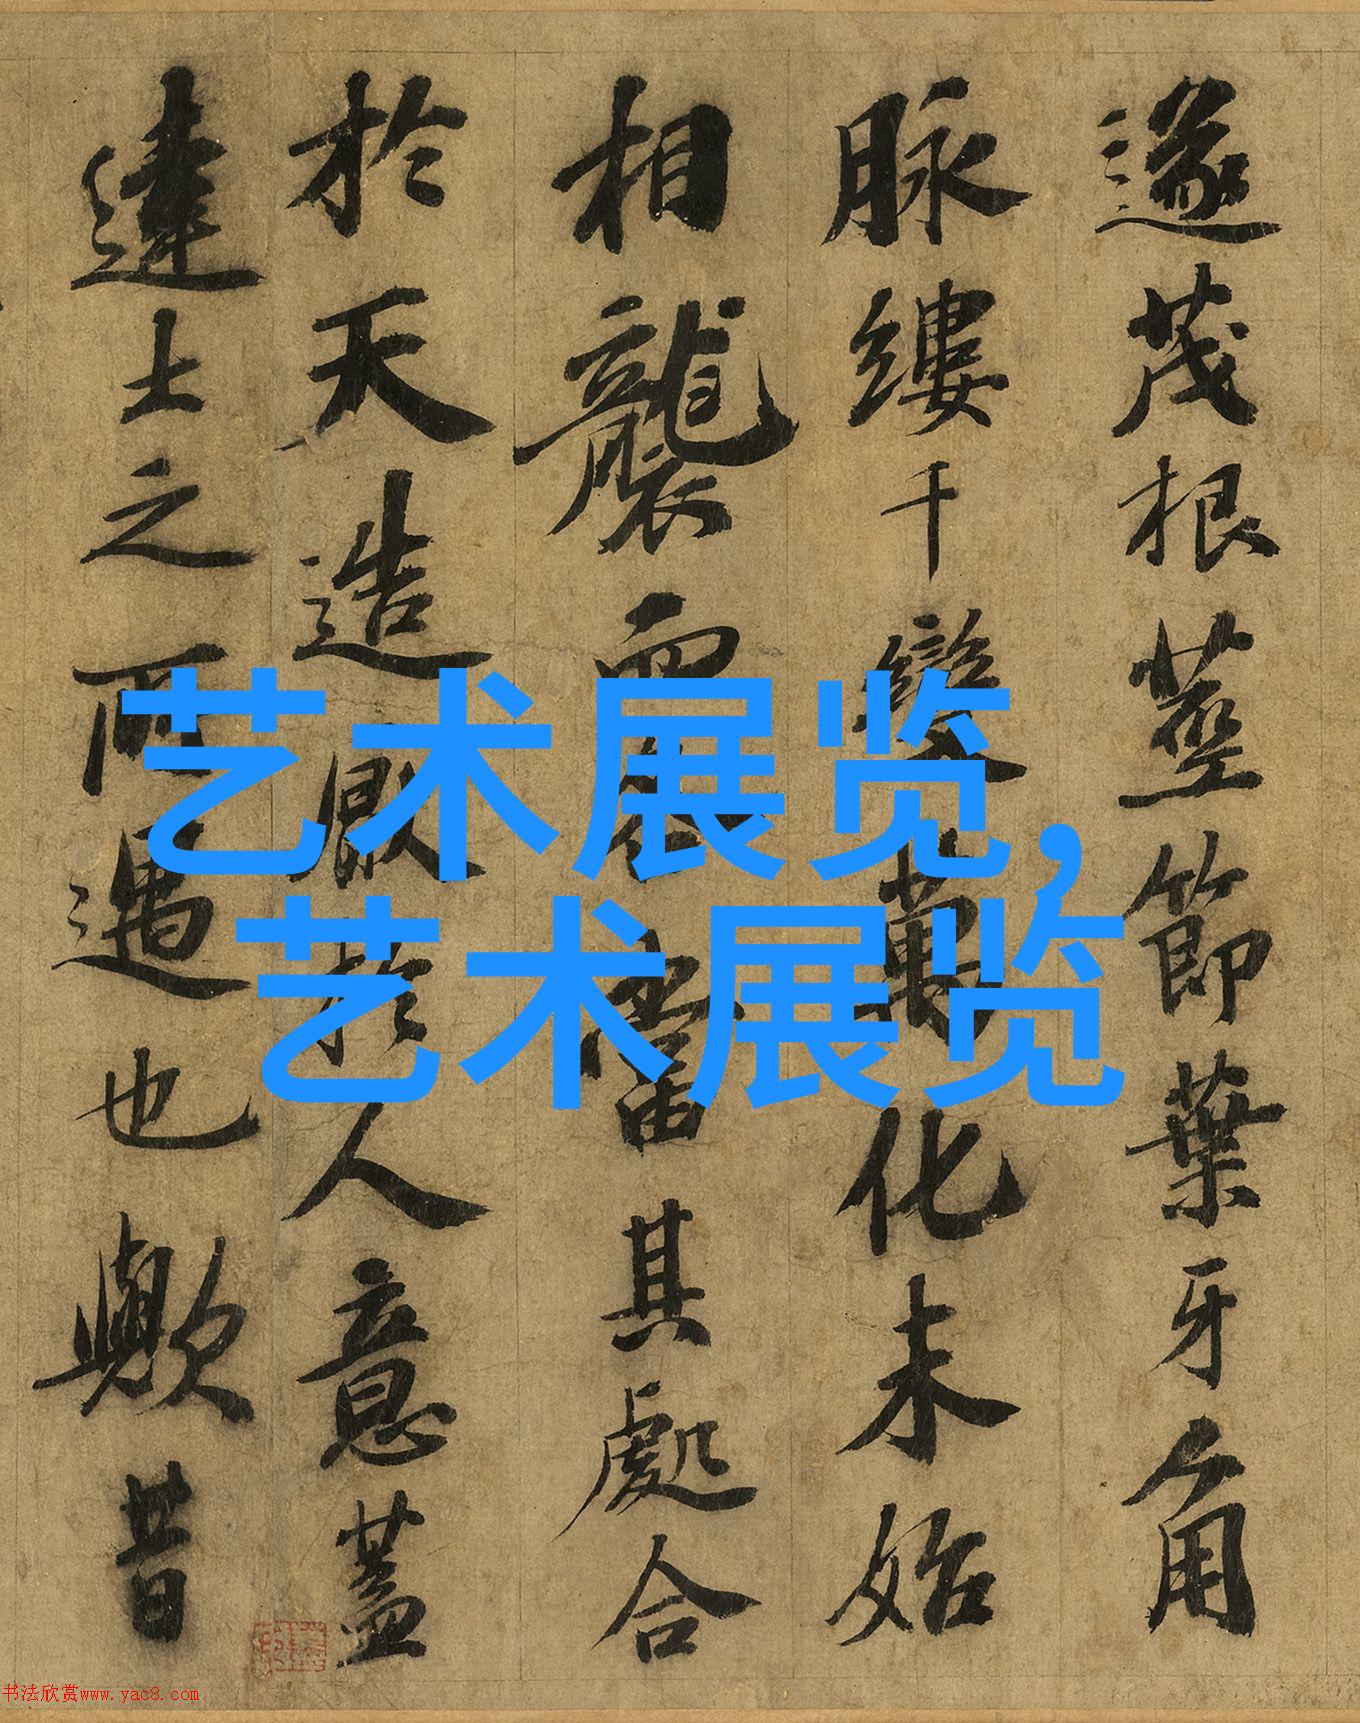 遂茂根莖節葉牙角
脉縷千變萬化未始
相襲而各當其處合
於天造厭於人意蓋
達士之所遇也歟昔
艺术展览,
艺术展览
书法欣赏www.yac8.com